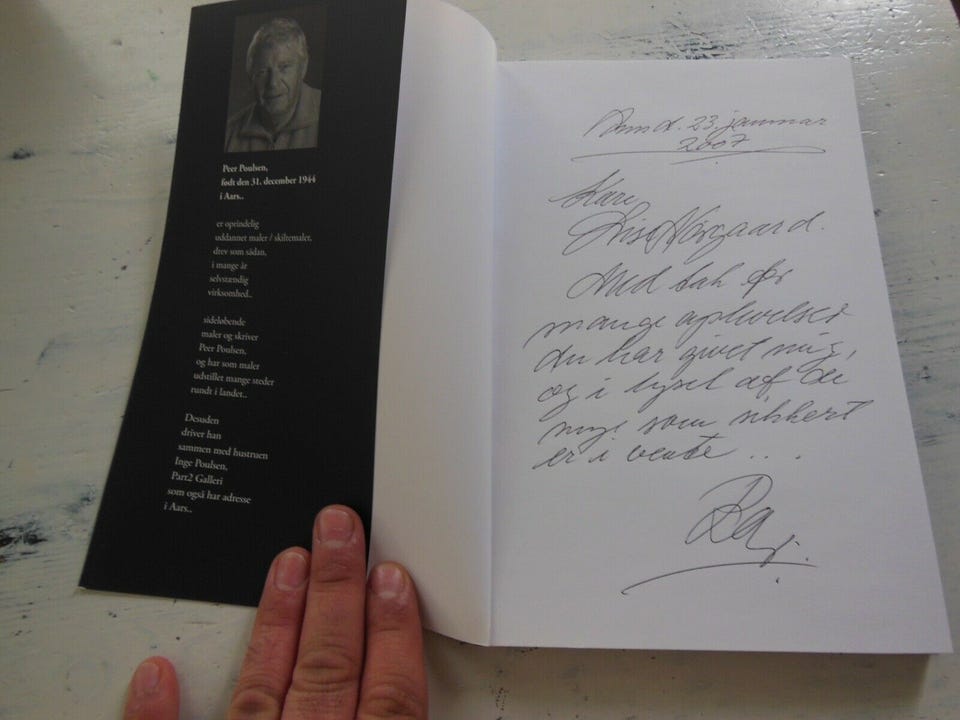 Peer Poulsen,
født den 31. december 1944
i Aars..
er oprindelig
uddannet maler / skiltemaler,
drev som sådan,
i mange år
selvstændig
virksomhed..
sideløbende
maler og skriver
Peer Poulsen,
og har som maler
udstillet mange steder
rundt i landet..
Desuden
driver han
sammen med hustruen
Inge Poulsen,
Part2 Galleri
som også har adresse
i Aars..
d. 23. januar
2007
Kære
Lise Nørgaard.
Med tak for
mange oplevelser
du har givet mig,
og i lyset af de
nye som sikkert
er i vente ....